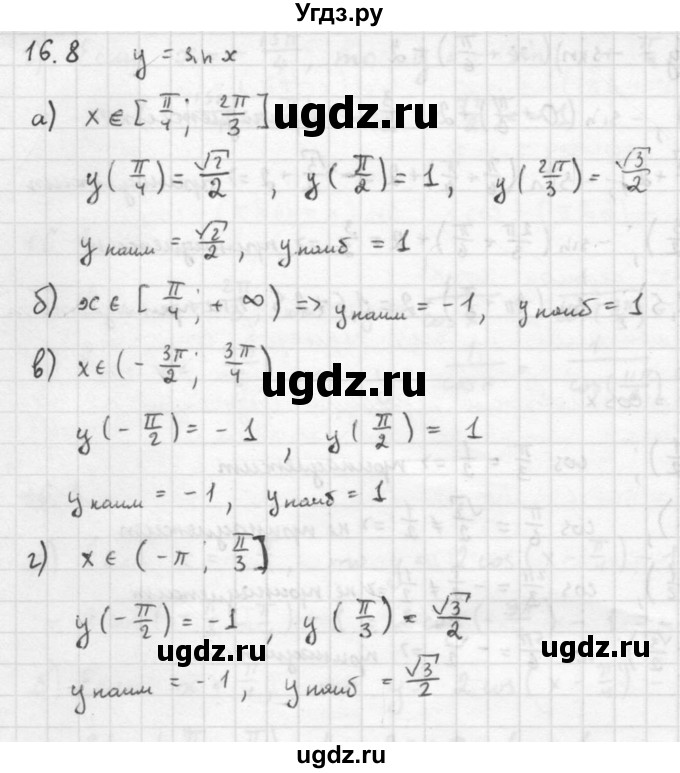 Угдз.ру
16.8 y = sin x
а) x ∈ [π/4; 2π/3]
ugdz.ru
y(π/4) = √2/2, y(π/2) = 1, y(2π/3) = √3/2
y наим = √2/2, y наиб = 1
б) x ∈ [π/4; +∞) => y наим = -1, y наиб = 1
в) x ∈ (-3π/2; 3π/4)
ugdz.ru
y(-π/2) = -1, y(π/2) = 1
y наим = -1, y наиб = 1
г) x ∈ (-π; π/3]
y(-π/2) = -1, y(π/3) = √3/2
ugdz.ru
ugdz.ru
y наим = -1, y наиб = √3/2
ugdz.ru